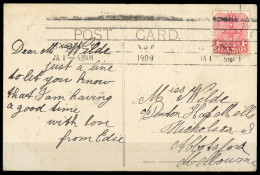 POST CARD.
1909
Dear M Wilde
just a line
to let you know
that I am having
a good time
with love
from Edie
Miss Wilde
Denton Hat Mills
Nicholson S
Abbotsford
Melbourne